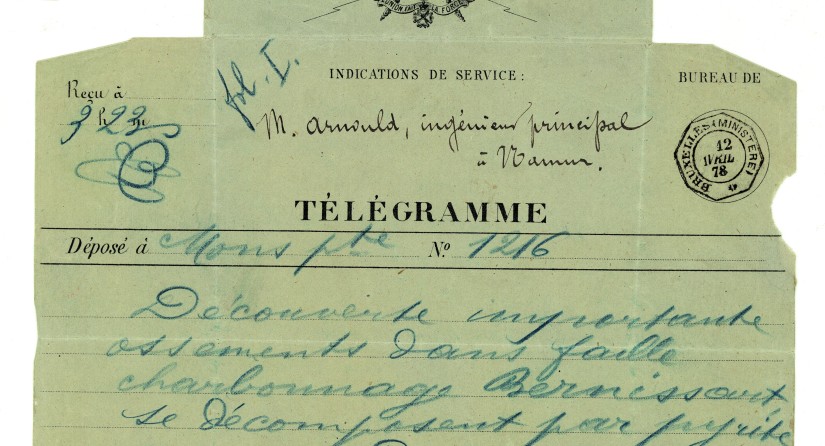 L'UNION FAIT LA FORCE
fol. I.
INDICATIONS DE SERVICE:
BUREAU DE
Reçu à
3 h 23 m
M. Arnould, ingénieur principal
à Namur.
BRUXELLES (MINISTÈRE)
12
AVRIL
78
TÉLÉGRAMME
Déposé à Mons pte No. 1216
Découverte importante
ossements dans faille
charbonnage Bernissart
se décomposent par pyrite